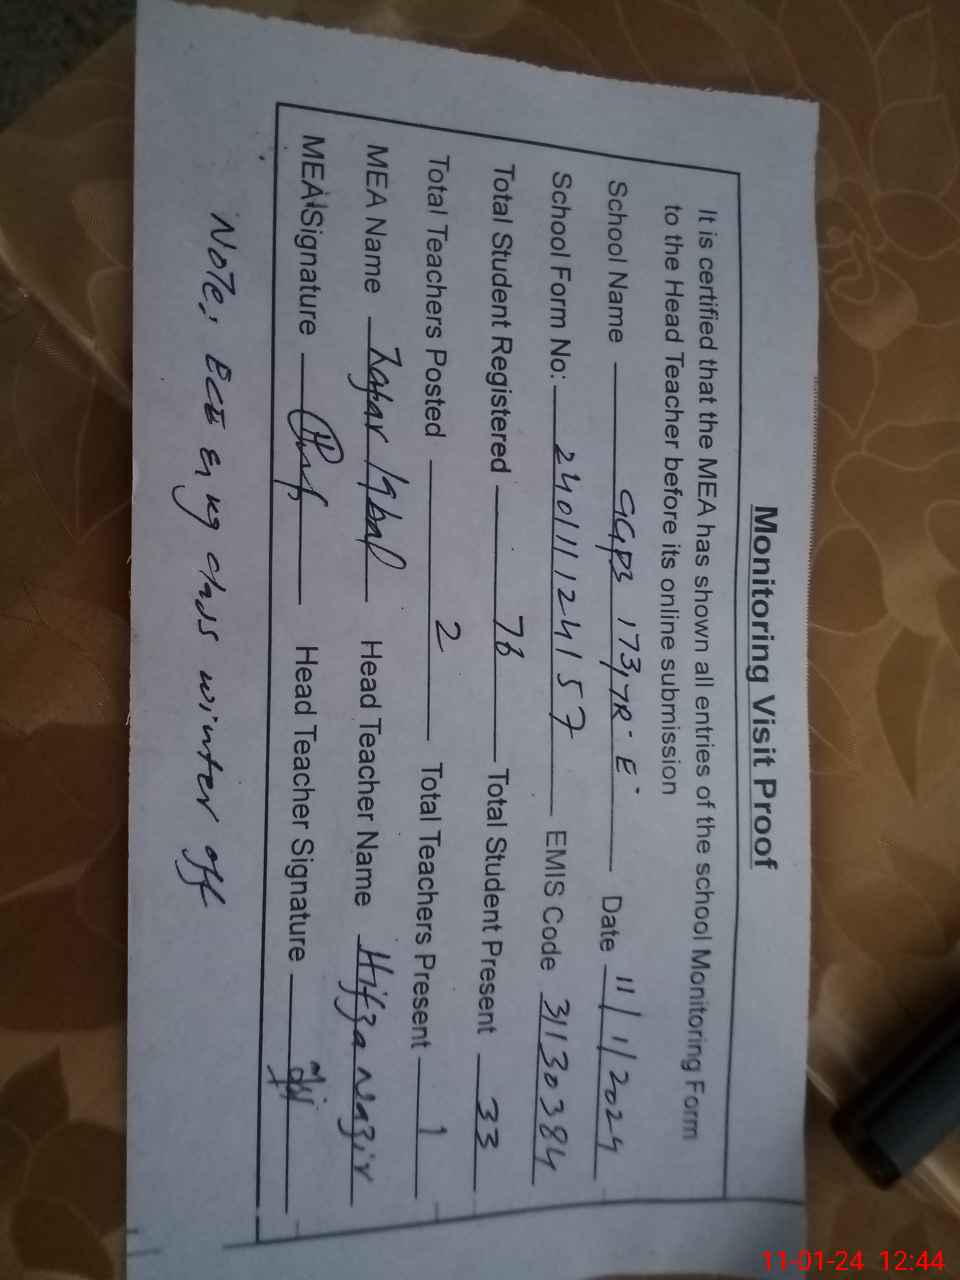 Monitoring Visit Proof
It is certified that the MEA has shown all entries of the school Monitoring Form
to the Head Teacher before its online submission
School Name GGPS 173,7R-E Date 11/1/2024
School Form No: 24011124157 EMIS Code 31130384
Total Student Registered 78 Total Student Present 33
Total Teachers Posted 2 Total Teachers Present 1
MEA Name Zafar Iqbal Head Teacher Name Hifza Nazir
MEA Signature Head Teacher Signature
Note: ECE class winter off
11-01-24 12:44